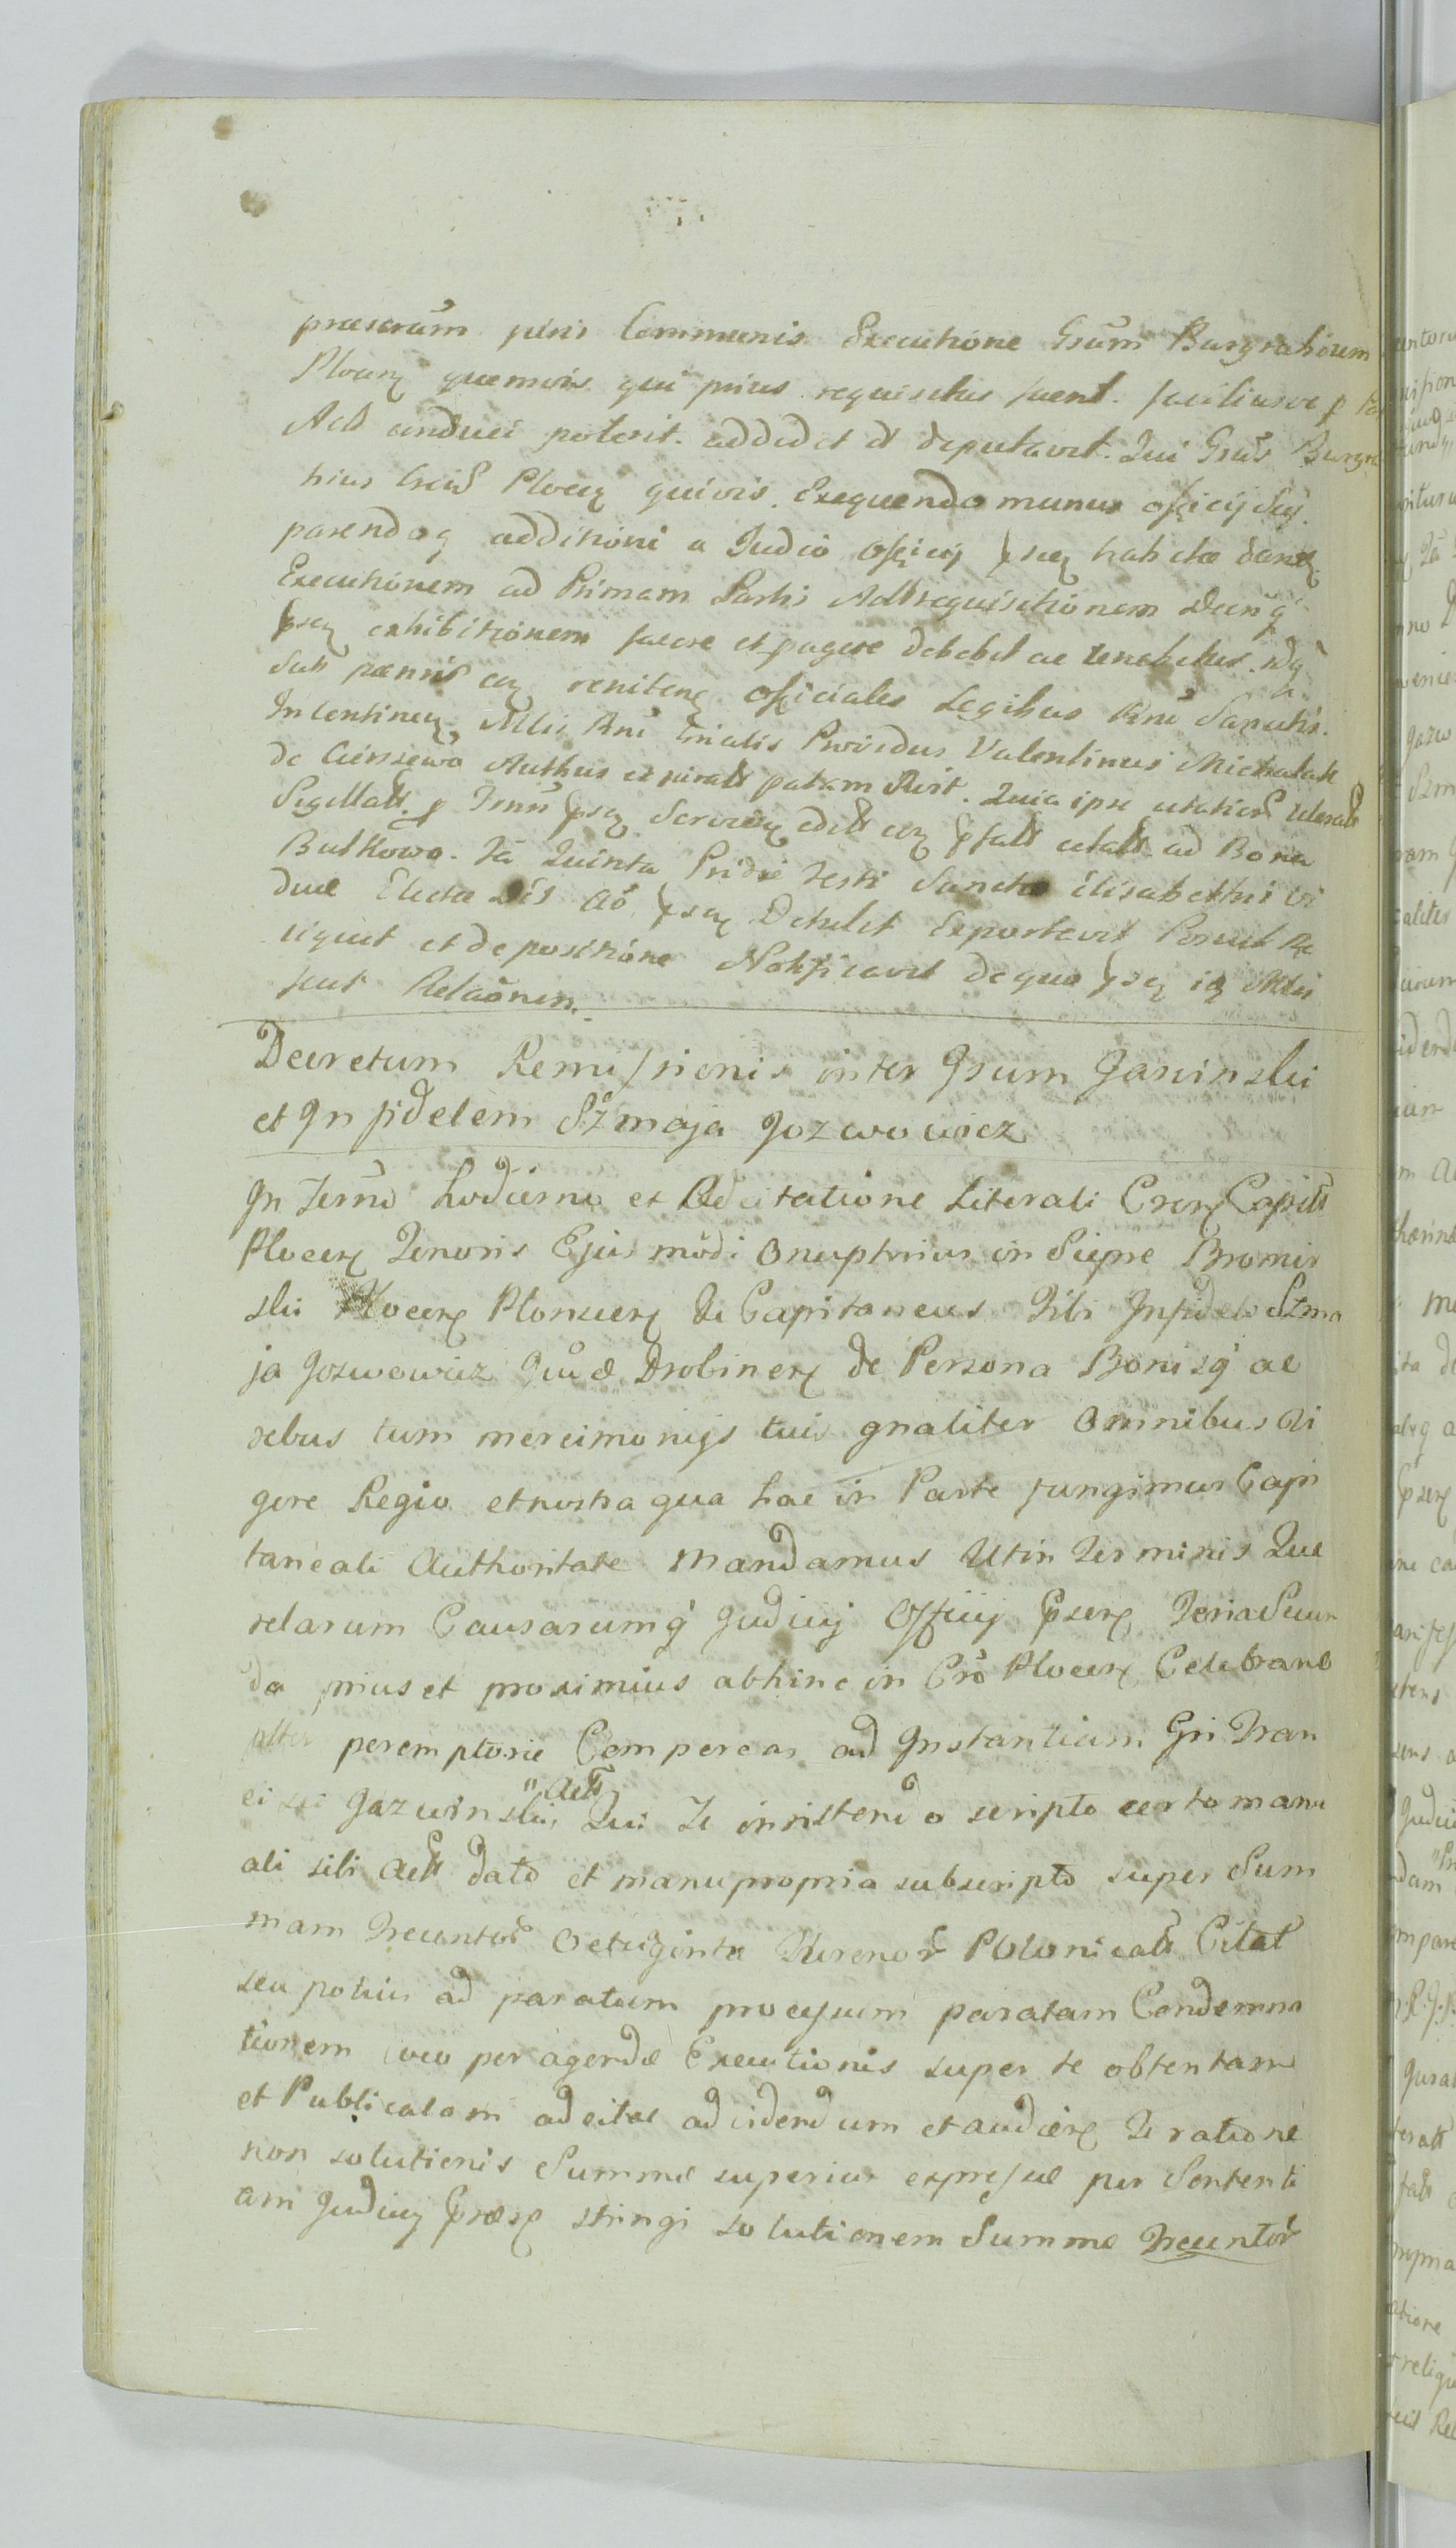 præsentim juris Communis Executione Gsum Burgrabium
Plocen quemvis qui prius requisitus fuerit faciliusve p
Act conduci poterit addidit et deputavit. Qui Gsus Burgra
bius Plocen quivis. Exequendo munus officij Sui
parendoq additioni a Judio officij psen habitæ
Executionem ad Primam Partis Act requisitionem
psen exhibitionem facere et peragere debebit ac tenebitur
Sub pænis officiales Legibus Rni Sancitis.
Mtri Rni Gnialis Providus Valentinus Michalak
de Cierszewo Authus palam Rcit. Quia ipse
Sigillatt. p Jmū psen ad Bona
Bulkowo. Ia Quinta Pridie Festi Sanctæ Elisabethis vi
duæ Electæ Dei aō psen Detulit Exportavit Posuit Re
liquit et de positione Notificavit de quo psen
fecit Relaōnem.
Decretum Remissionis inter Gsum Jazwinski
et Infidelem Szmaja Jozwowicz
In Termō hodierno et Adcitatione Literali Crēn Capitt
Plocen Tenoris Ejusmōdi Onuphrius in Siepre Bromir
ski Plocen Plonscen Capitaneus Tibi Infideli Szma
ja Joswowicz Drobinen de Persona Bonisq ac
rebus tum mercimonijs tuis gnaliter Omnibus Vi
gore Regio et nostra qua hac in Parte fungimur Capi
taneali Authoritate Mandamus Ut in Terminis Que
relarum Causarumq Judicij Officij psen Feria Secun
da prius et proximius abhinc in Crō Plocen Celebrand
peremptorie Compereas ad Instantiam Gsi Fran
ci sci Jazwinski, "Actt Qui Te insistendo scripto certo manu
ali sibi Actt dato et manu propria subscripto super Sum
mam Trecentor Octuginta Florenor Polonicalt Citat
seu potius ad paratum processum paratam Condemna
tionem loco peragendæ Executionis super te obtentam
et Publicatam adcitat ad videndum et audien Te ratione
non solutionis Summæ superius expressæ per Sententi
am Judicij psen stringi solutionem Summæ Trecentor